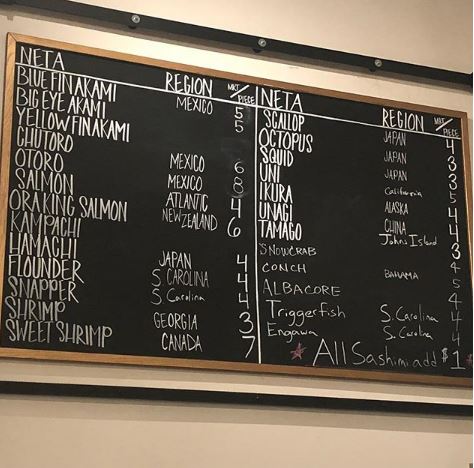 NETA REGION MKT/PIECE
BLUE FIN AKAMI MEXICO 5
BIG EYE AKAMI 5
YELLOWFIN AKAMI
CHUTORO MEXICO 6
OTORO MEXICO 8
SALMON ATLANTIC 4
ORA KING SALMON NEW ZEALAND 6
KAMPACHI
HAMACHI JAPAN 4
FLOUNDER S CAROLINA 4
SNAPPER S Carolina 4
SHRIMP GEORGIA 3
SWEET SHRIMP CANADA 7
NETA REGION MKT/PIECE
SCALLOP JAPAN 4
OCTOPUS JAPAN 3
SQUID JAPAN 3
UNI California 5
IKURA ALASKA 4
UNAGI CHINA 4
TAMAGO Johns Island 3
SNOWCRAB 4
CONCH BAHAMA 5
ALBACORE 4
Triggerfish S. Carolina 4
Engawa S. Carolina 4
All Sashimi add $1